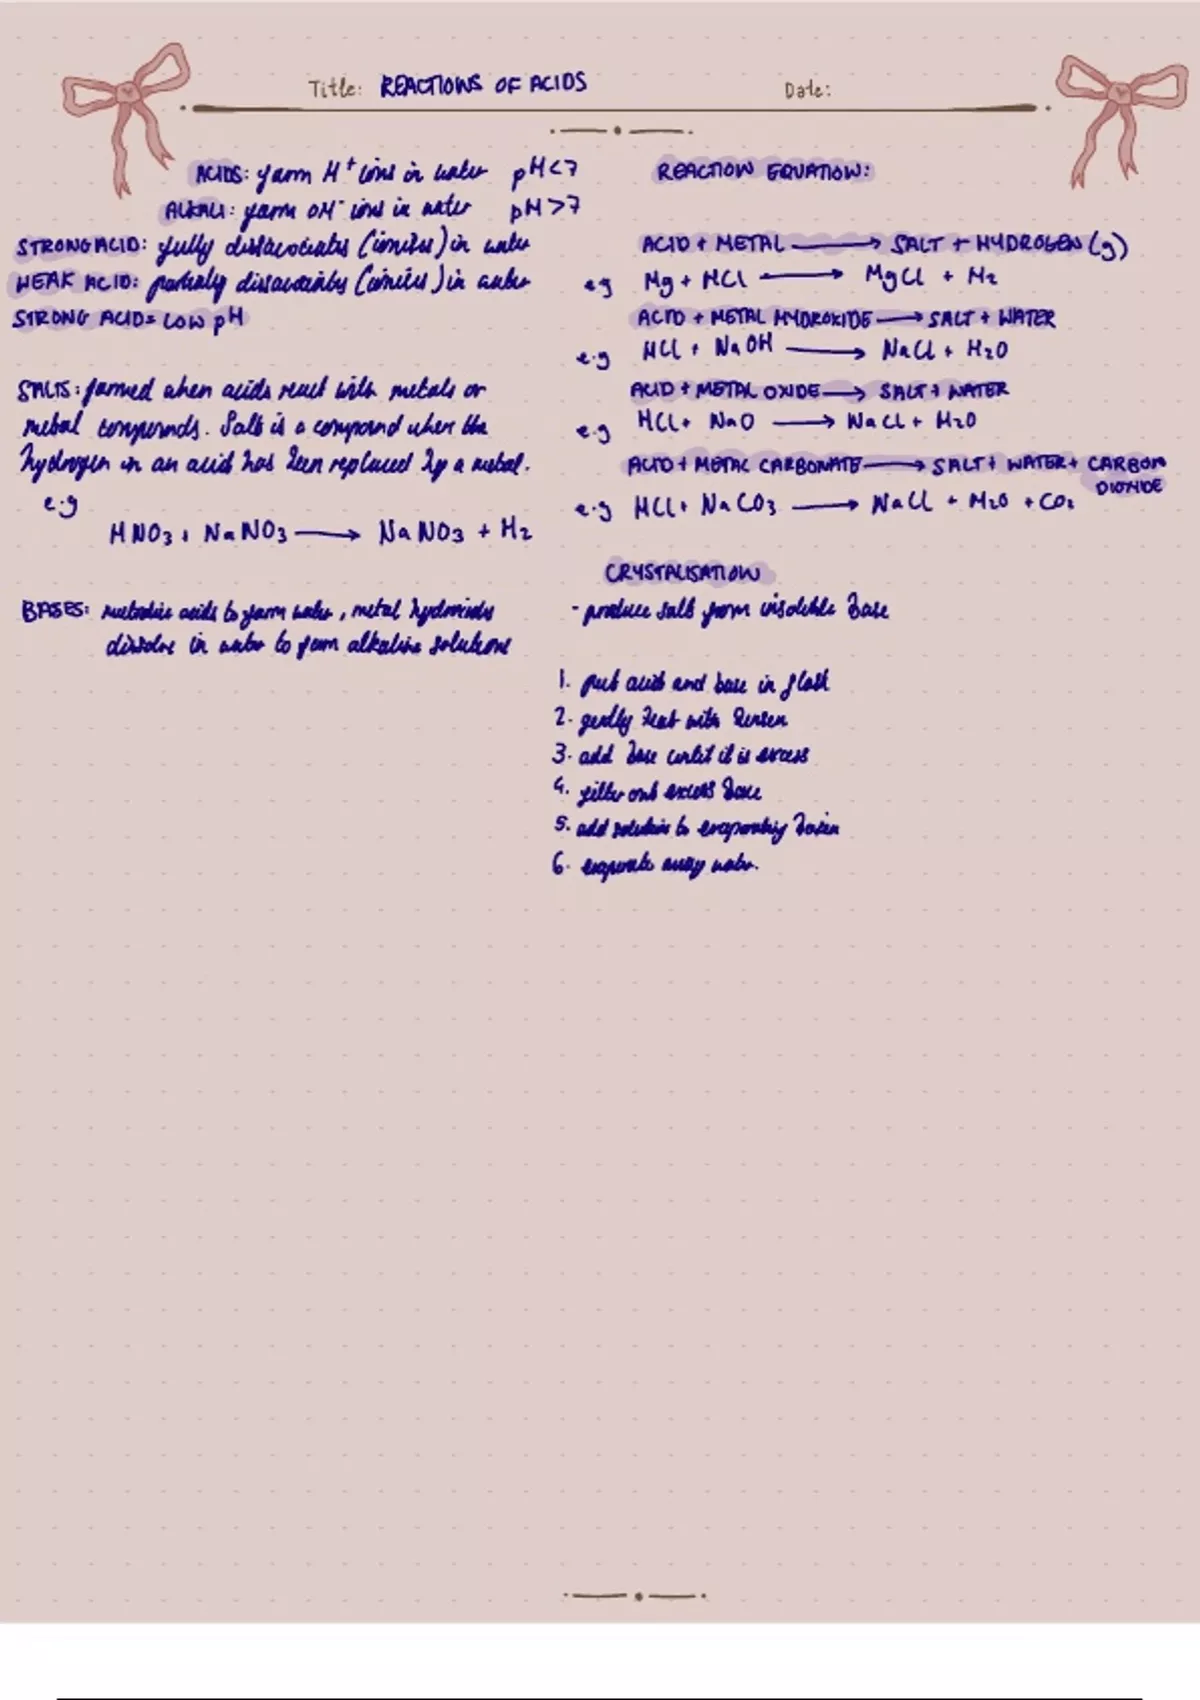 Title: REACTIONS OF ACIDS
Date:
ACIDS: form H+ ions in water pH<7
ALKALI: form OH- ions in water pH>7
STRONG ACID: fully dissacociates (ionises) in water
WEAK ACID: partially dissaociates (ionises) in water
STRONG ACID = LOW pH
SALTS: formed when acids react with metals or
metal compounds. Salt is a compound when the
hydrogen in an acid has been replaced by a metal.
e.g
HNO3 + NaNO3 → NaNO3 + H2
BASES: neutralise acids to form water, metal hydroxides
dissolve in water to form alkaline solutions
REACTION EQUATION:
ACID + METAL → SALT + HYDROGEN (g)
eg Mg + HCl → MgCl + H2
ACID + METAL HYDROXIDE → SALT + WATER
e.g HCl + NaOH → NaCl + H2O
ACID + METAL OXIDE → SALT + WATER
e.g HCl + NaO → NaCl + H2O
ACID + METAL CARBONATE → SALT + WATER + CARBON
DIOXIDE
e.g HCl + NaCO3 → NaCl + H2O + CO2
CRYSTALISATION
- produce salt from insoluble base
1. put acid and base in flask
2. gently heat with Bunsen
3. add base until it is excess
4. filter out excess base
5. add solution to evaporating basin
6. evaporate away water.